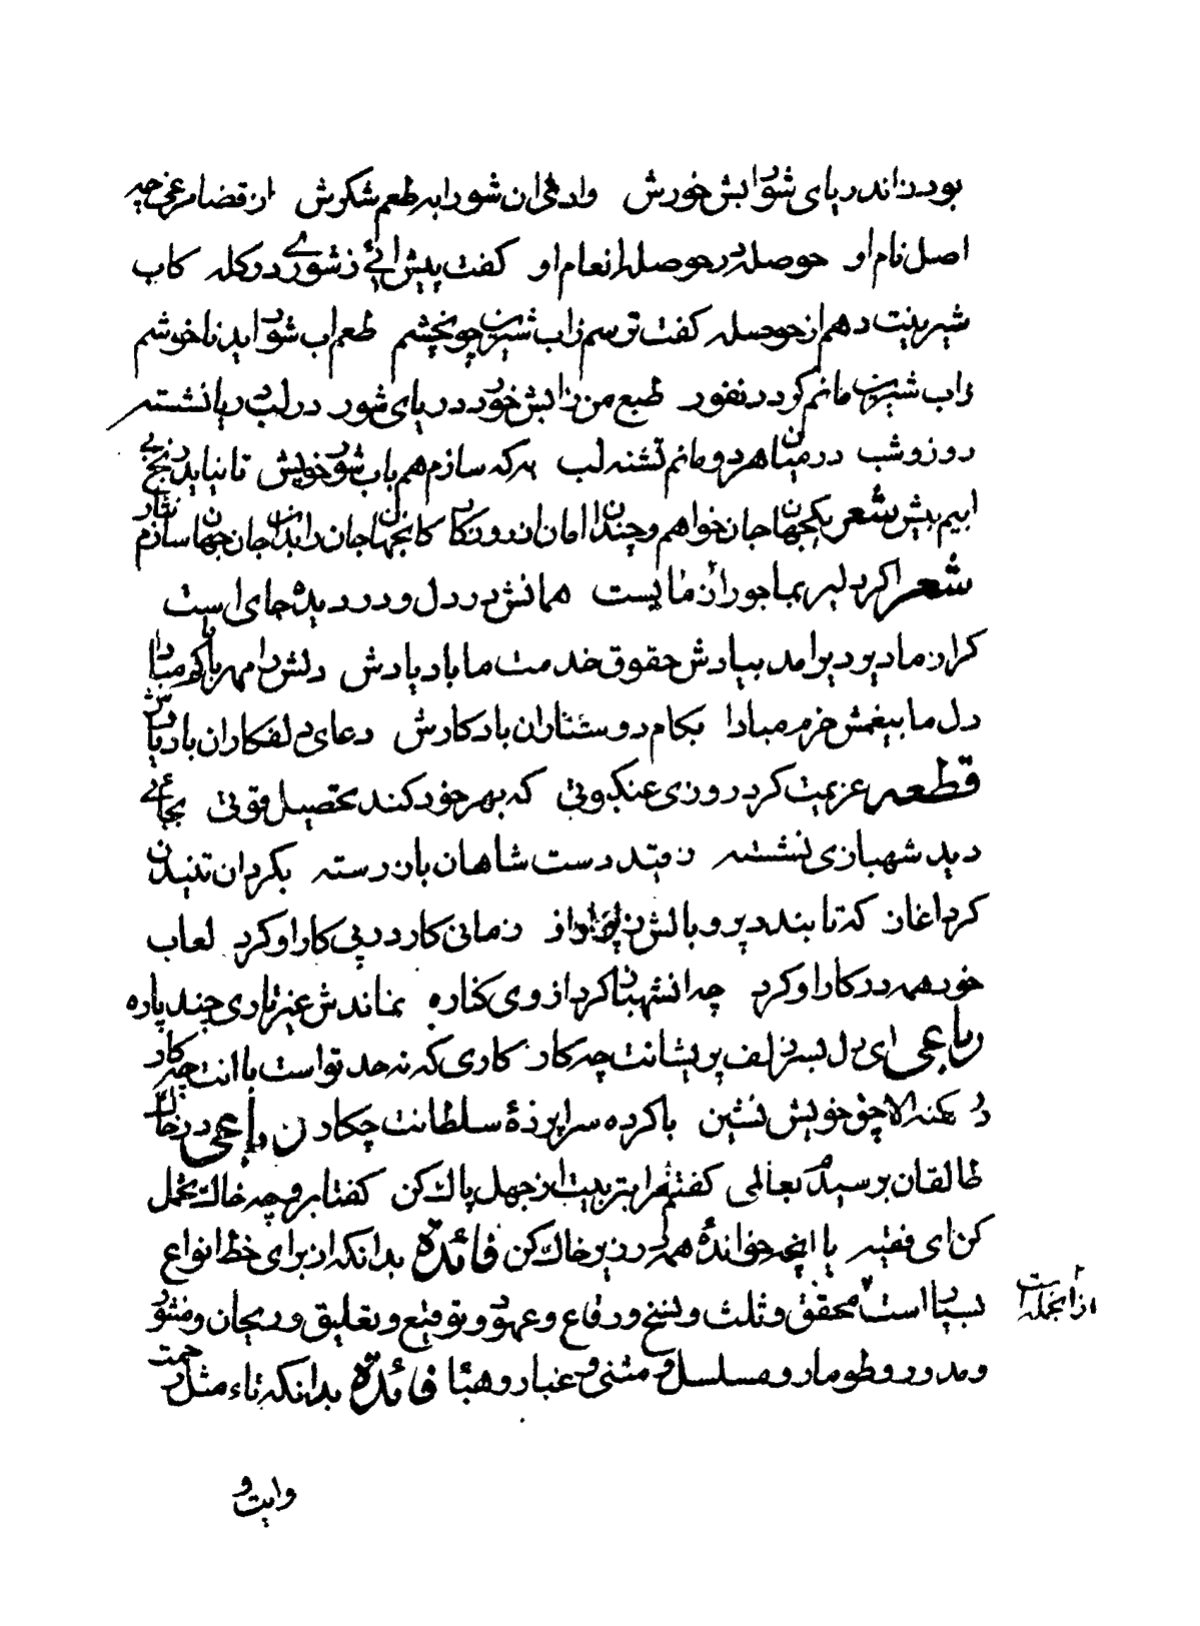 بود زاندریای شور آبش خورش دادی آن شور آبه طعم شکرش از قضا مرغی چه
اصل نام او حوصله پر حوصله از انعام او کفت پیش آئی ز شوری در کله کاب
شیرینت دهم از حوصله کفت ترسم زاب شیرین چو نچشم طعم آب شور آید ناخوشم
زاب شیرین مانم کردد نفور طبع من زابش خور دریای شور در لب دریا نشسته
روز و شب در میان هر دو مانم تشنه لب به که سازم هم باب شور خویش تا نیاید رنج بی
آبیم پیش شعر یکجهان جان خواهم و چندان امان از روزکار کانجهان جان را بدان جان جهان سازم نثار
شعر اکر دلبر بما جورآزمایست همانش در دل و در دیده جای است
کر از ما دیر دیر آمد بیادش حقوق خدمت ما باد یادش دلش را مهر با کم مبادا
دل ما بیغمش خرم مبادا بکام دوستداران باد کارش دعای دلفکاران باد یارش
قطعه عزیمت کرد روزی عنکبوتی که بهر خود کند تحصیل قوتی بجائی
دید شهبازی نشسته ز قید دست شاهان باز رسته بکرد آن تنیدن
کرد آغاز که تا بندد پر و بالش ز پرواز زمانی کار در پی کار او کرد لعاب
خود همه در کار او کرد چه آن شهباز کرد از وی کناره نماندش غیر تاری چند پاره
رباعی ای دل بسر زلف پریشانت چه کار کاری که نه حد تو است با انت چه کار
در کهنه الاچق خویش نشین با کرده سراپردهٔ سلطانت چکار ن رباعی در خاک
طالقان برسیدم بعالمی کفتم مرا بتربیت از جهل پاک کن کفتا برو چه خاک تحمل
کن ای فقیه یا انچه خواندهٔ همه در زیر خاک کن فائدة بدانکه از برای خط انواع
بسیار است محقق و ثلث و نسخ و رقاع و عهود و توقیع و تعلیق و ریحان و منثور
ازآنجمله است
و مدور و طومار و مسلسل و مثنی و غبار و هبا فائدة بدانکه تاء مثل رحمت
و ایت و